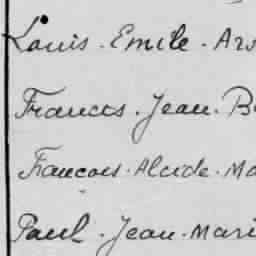 Louis. Emile. Ar
Francis. Jean. B
Francois. Alcide. Ma
Paul. Jean. Mari